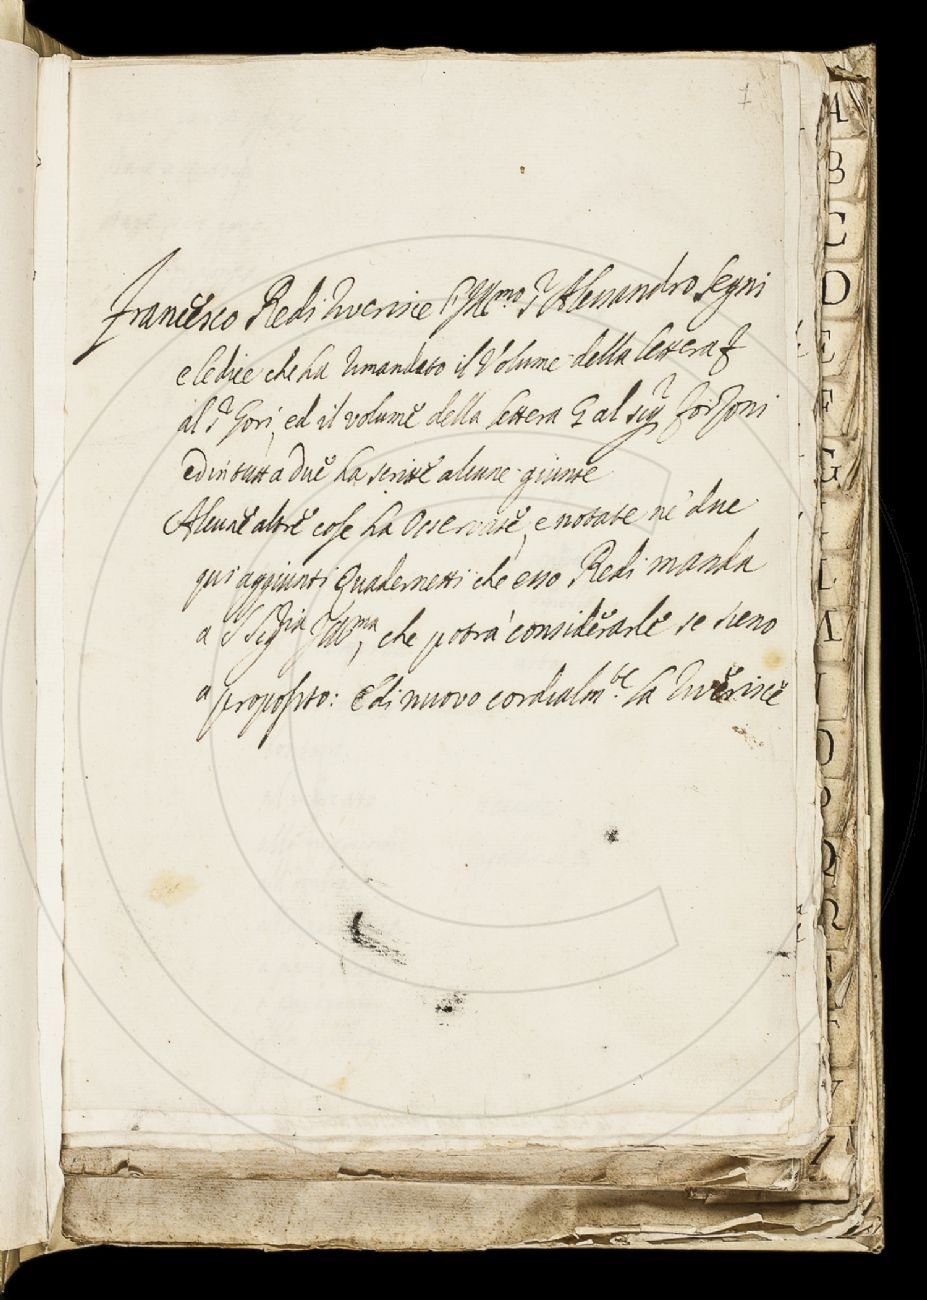 1
Francesco Redi Riverisce l'Ill.mo S.r Alessandro Segni
e le dice che ha rimandato il Volume della lettera F
al S.r Gori, ed il volume della lettera G al Sig.r Forzoni
ed in tutta due ha scritte alcune giunte
Alcune altre cose ha osservate, e notate ne' due
qui aggiunti Quadernetti che esso Redi manda
a S. Sig.ria Ill.ma, che potrà considerarle se sieno
a proposito: e di nuovo cordialm.te la Riverisce
A
B
C
D
E
F
G
I
L
O
P
Q
R